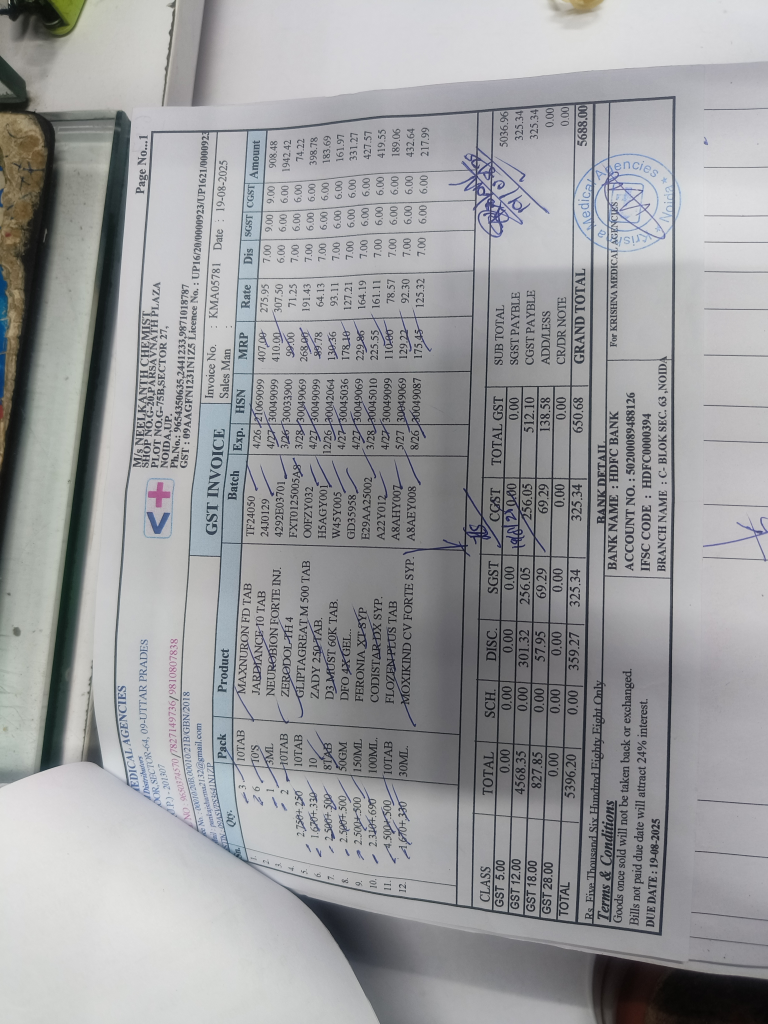 Page No...1
MEDICAL AGENCIES
Distributors
OOR,SECTOR-64, 09-UTTAR PRADES
.P.) - 201307
NO 9650474570/7827149736/9810807838
M/s NEELKANTH CHEMIST
SHOP NO.G-20,PARSAVNATH PLAZA
PLOT NO.G-75B,SECTOR 27,
NOIDA,UP.
Ph.No.: 9654350635,2441233,9871018787
GST : 09AAGFN1231N1ZS Licence No. : UP16/20/0000923/UP1621/0000923
GST INVOICE
Invoice No. : KMA05781 Date : 19-08-2025
Sales Man :
Qty. Pack Product Batch Exp. HSN MRP Rate Dis SGST CGST Amount
1. 3 10TAB MAXNURON FD TAB TF24050 4/26 21069099 407.00 275.95 7.00 9.00 9.00 908.48
2. 6 10'S JARDIANCE 10 TAB 24J0129 4/27 30049099 410.00 307.50 6.00 6.00 6.00 1942.42
3. 1 3ML NEUROBION FORTE INJ. 4292E03701 3/26 30033900 71.25 7.00 6.00 6.00 74.22
4. 2 10TAB ZERODOL TH 4 FXT0125005AS 3/28 30049069 268.00 191.43 7.00 6.00 6.00 398.78
5. 2.750+.250 10TAB GLIPTAGREAT M 500 TAB O0FZY032 4/27 30049099 89.78 64.13 7.00 6.00 6.00 183.69
6. 1.670+.330 10 ZADY 250 TAB. H5AGY001 12/26 30042064 130.36 93.11 7.00 6.00 6.00 161.97
7. 2.500+.500 8TAB D3 MUST 60K TAB. W45Y005 4/27 30045036 178.10 127.21 7.00 6.00 6.00 331.27
8. 2.500+.500 50GM DFO 4X GEL GD35958 4/27 30049069 229.86 164.19 7.00 6.00 6.00 427.57
9. 2.500+.500 150ML FERONIA XT SYP E29AA25002 3/28 30045010 225.55 161.11 7.00 6.00 6.00 419.55
10. 2.310+.690 100ML. CODISTAR DX SYP. A22Y012 4/27 30049099 110.00 78.57 7.00 6.00 6.00 189.06
11. 4.500+.500 10TAB FLOZEN PLUS TAB A8AHY007 5/27 30049069 129.22 92.30 7.00 6.00 6.00 432.64
12. 1.670+.330 30ML MOXIKIND CV FORTE SYP. A8AEY008 8/26 30049087 175.45 125.32 7.00 6.00 6.00 217.99
CLASS TOTAL SCH. DISC. SGST CGST TOTAL GST
GST 5.00 0.00 0.00 0.00 0.00 0.00 0.00
GST 12.00 4568.35 0.00 301.32 256.05 256.05 512.10
GST 18.00 827.85 0.00 57.95 69.29 69.29 138.58
GST 28.00 0.00 0.00 0.00 0.00 0.00 0.00
TOTAL 5396.20 0.00 359.27 325.34 325.34 650.68
SUB TOTAL 5036.96
SGST PAYBLE 325.34
CGST PAYBLE 325.34
ADD/LESS 0.00
CR/DR NOTE 0.00
GRAND TOTAL 5688.00
Rs. Five Thousand Six Hundred Eighty Eight Only
Terms & Conditions
Goods once sold will not be taken back or exchanged.
Bills not paid due date will attract 24% interest.
DUE DATE : 19-08-2025
BANK DETAIL
BANK NAME : HDFC BANK
ACCOUNT NO. : 50200089488126
IFSC CODE : HDFC0000394
BRANCH NAME : C- BLOK SEC. 63 ,NOIDA
For KRISHNA MEDICAL AGENCIES
Krishna Medical Agencies * Noida *